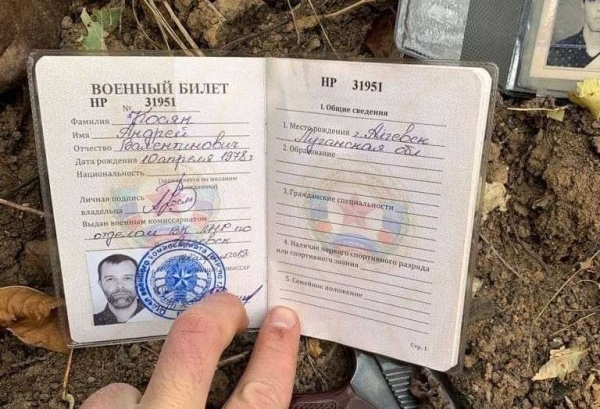 ВОЕННЫЙ БИЛЕТ
НР № 31951
Фамилия Косян
Имя Андрей
Отчество Валентинович
Дата рождения 10 апреля 1978 г
Национальность
(заполняется по желанию
гражданина)
Личная подпись
владельца
Выдан военным комиссариатом
отделом ВК ЛНР по
НР 31951
I. Общие сведения
1. Место рождения г. Алчевск
Луганская обл
2. Образование
3. Гражданские специальности
4. Наличие первого спортивного разряда
или спортивного звания
5. Семейное положение
Стр. 1